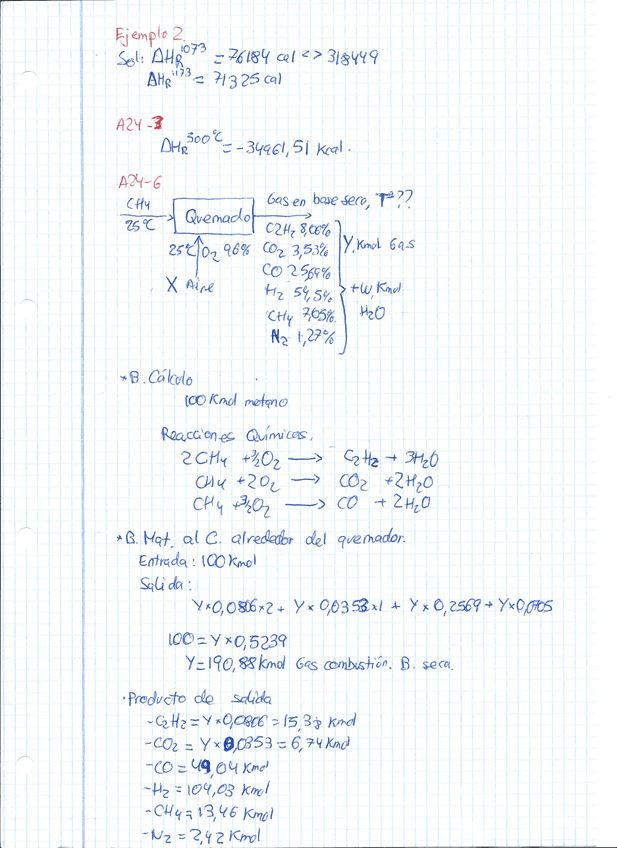 Ejemplo 2.
Sol: ΔH_R^1073 = 76184 cal <> 318449
ΔH_R^1173 = 71325 cal
A24-3
ΔH_R^500°C = -34961,51 Kcal.
A24-6
CH4
25°C
Quemado
Gas en base seco, Tª??
25°C O2 96%
X Aire
C2H2 8,06%
CO2 3,53%
CO 25,69%
H2 54,5%
CH4 7,05%
N2 1,27%
Y, Kmol Gas
+W, Kmol
H2O
*B. Cálculo
100 Kmol metano
Reacciones Químicas.
2CH4 + 3/2 O2 → C2H2 + 3H2O
CH4 + 2O2 → CO2 + 2H2O
CH4 + 3/2 O2 → CO + 2H2O
*B. Mat. al C. alrededor del quemador.
Entrada: 100 Kmol
Salida:
Y×0,0806×2 + Y×0,0353×1 + Y×0,2569 + Y×0,0705
100 = Y×0,5239
Y = 190,88 Kmol Gas combustión. B. seca.
·Producto de salida
-C2H2 = Y×0,0806 = 15,38 Kmol
-CO2 = Y×0,0353 = 6,74 Kmol
-CO = 49,04 Kmol
-H2 = 104,03 Kmol
-CH4 = 13,46 Kmol
-N2 = 2,42 Kmol